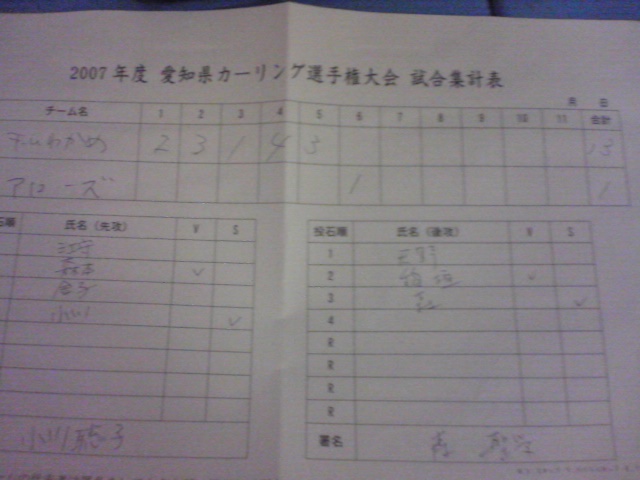 2007年度 愛知県カーリング選手権大会 試合集計表
月 日
チーム名 1 2 3 4 5 6 7 8 9 10 11 合計
チームわかめ 2 3 1 4 3 13
アローズ 1 1
石順 氏名(先攻) V S
森本 ✓
金子
小川 ✓
小川 聡子
投石順 氏名(後攻) V S
1
2 稲垣 ✓
3 ✓
4
R
R
R
R
署名 森